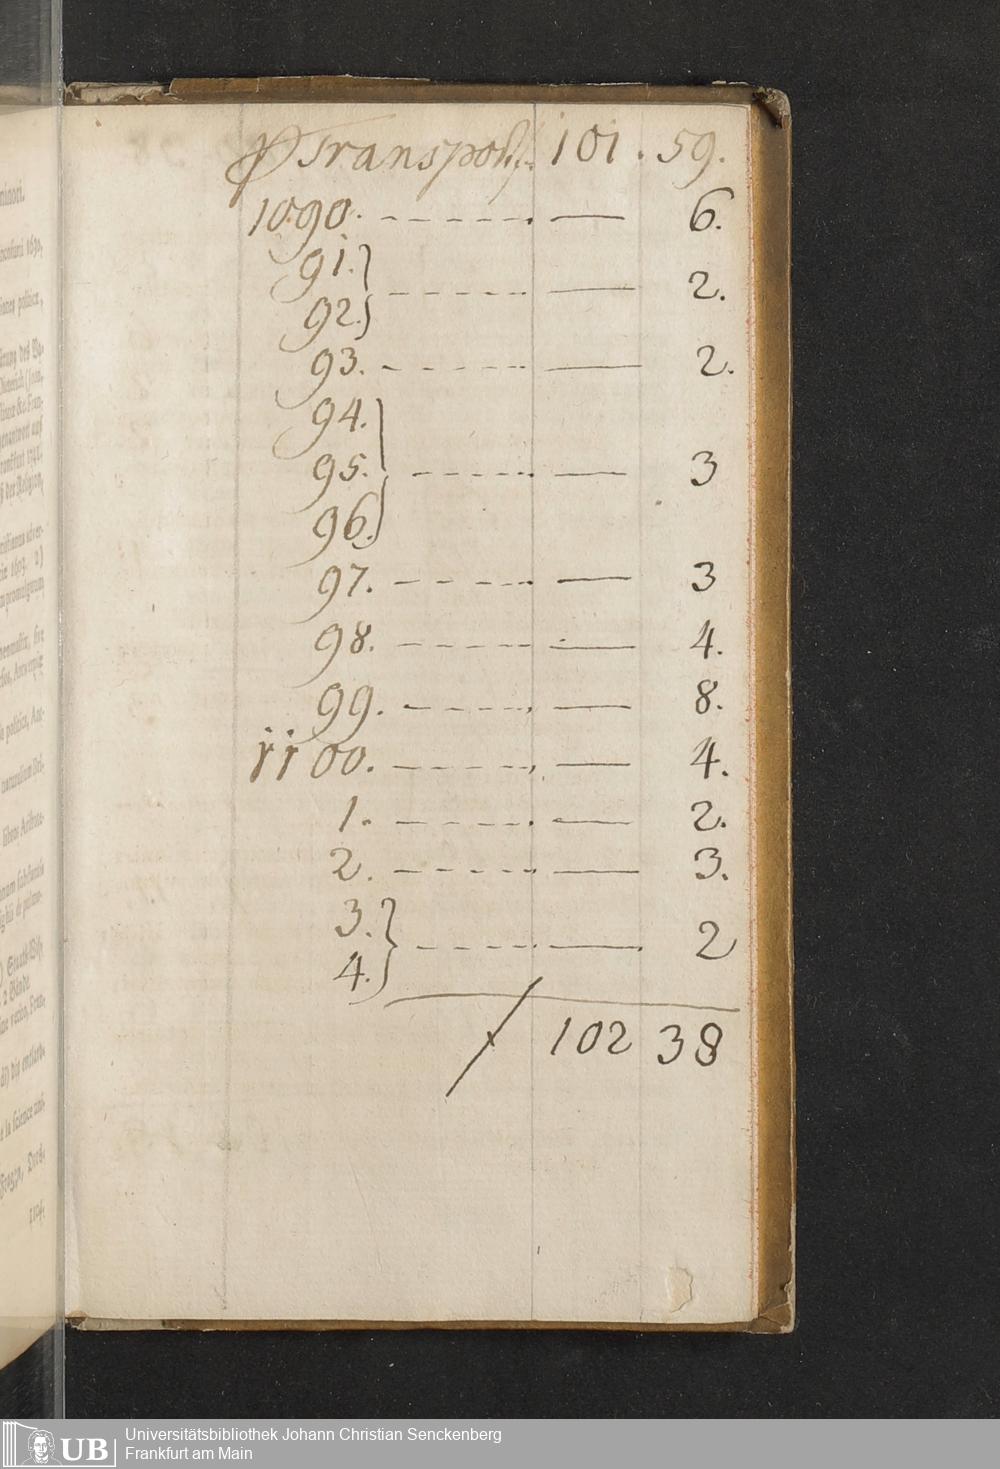 P Transport. 101. 59.
1090. - - - - - - — 6.
91. }
92. } - - - - - - — 2.
93. - - - - - - — 2.
94. }
95. } - - - - - — 3
96. }
97. - - - - - - — 3
98. - - - - - - — 4.
99. - - - - - - — 8.
1100. - - - - - - — 4.
1. - - - - - - — 2.
2. - - - - - - — 3.
3. }
4. } - - - - - — 2
102 38
minori.
politicæ,
1104.
UB
Universitätsbibliothek Johann Christian Senckenberg
Frankfurt am Main